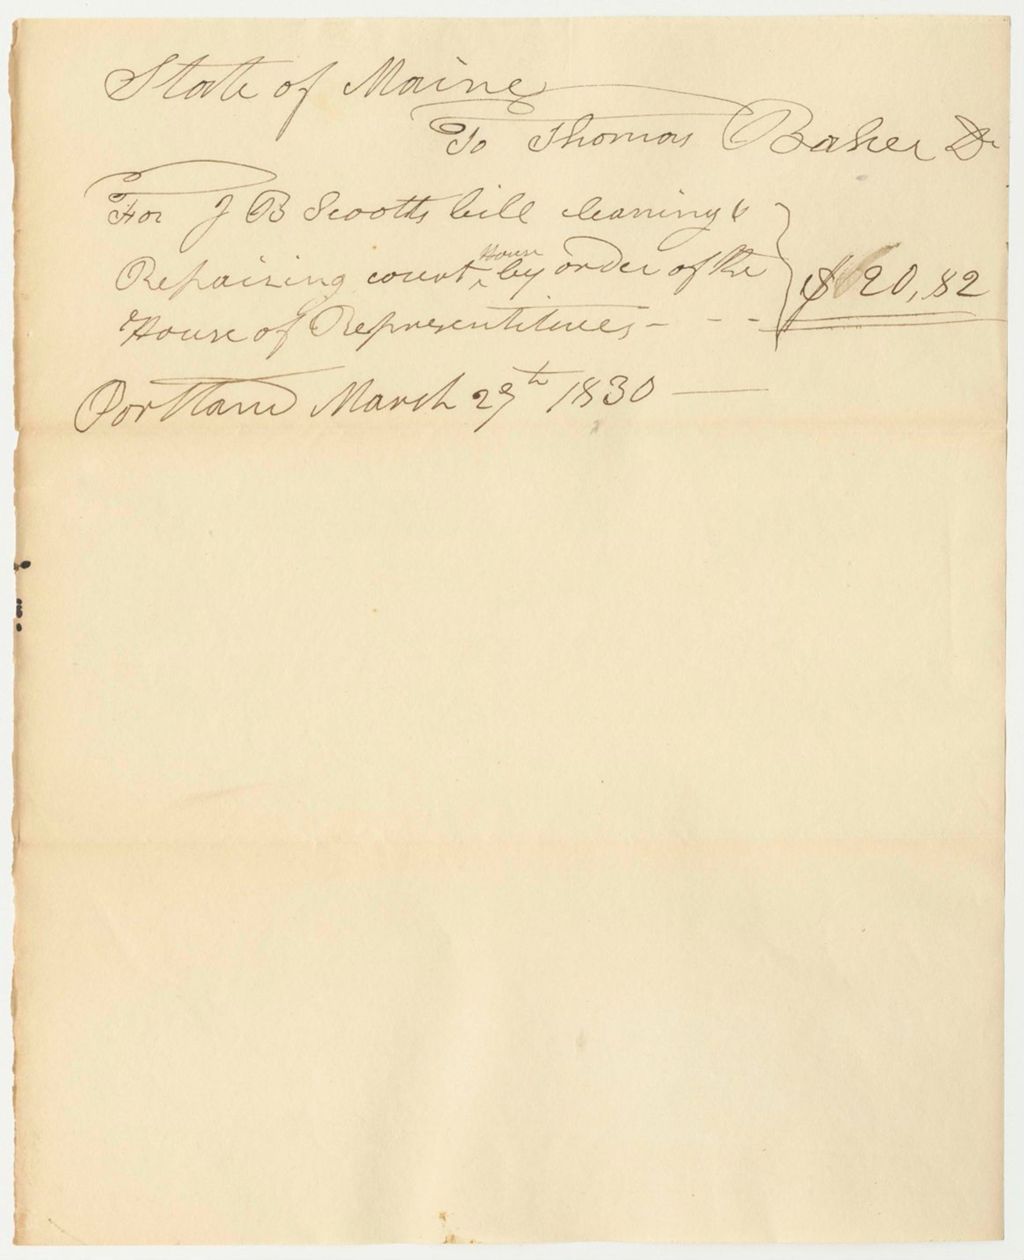 State of Maine
To Thomas Baker Dr
For J B Scootts bill cleaning &
Repairing court House by order of the
House of Representitives - - - $20,82
Portland March 29th 1830